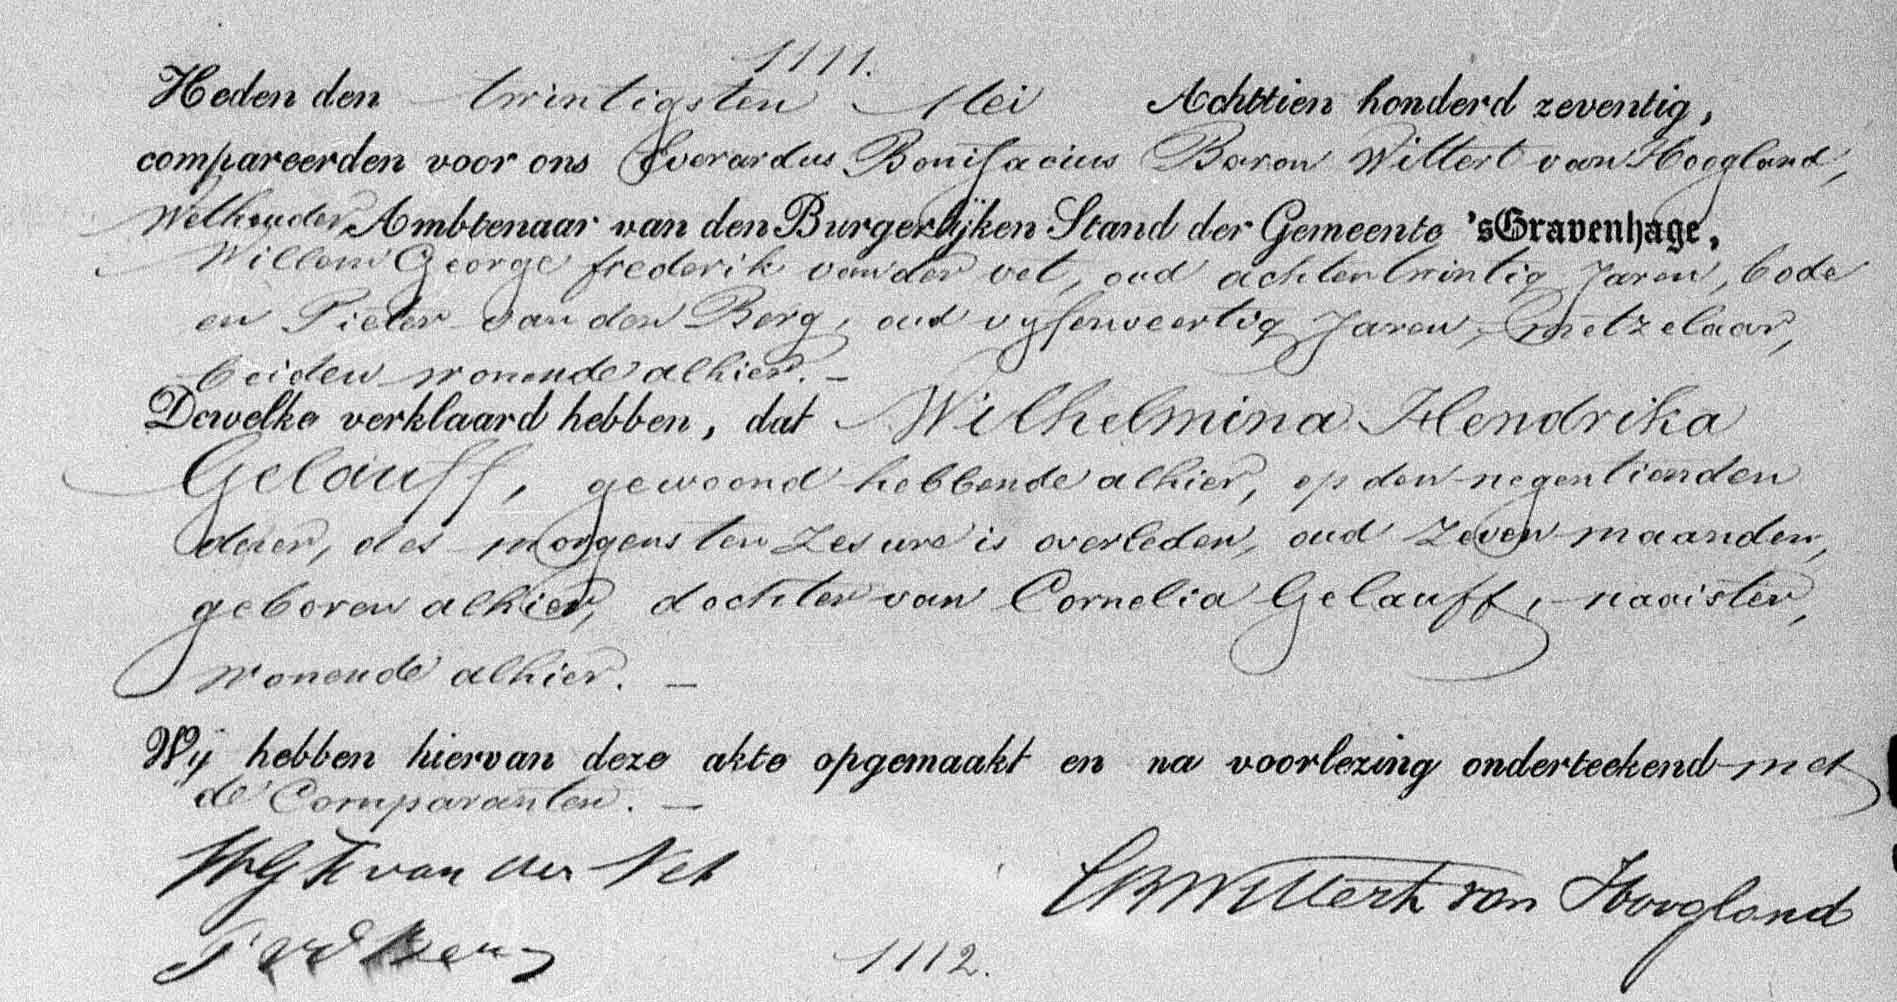 1111.
Heden den twintigsten Mei Achttien honderd zeventig,
compareerden voor ons Everardus Bonifacius Baron Wittert van Hoogland,
Wethouder, Ambtenaar van den Burgerlijken Stand der Gemeente 'sGravenhage,
Willem George frederik van der vet, oud achtentwintig Jaren, bode
en Pieter van den Berg, oud vyfenveertig Jaren, metzelaar,
beiden wonende alhier. —
Dewelke verklaard hebben, dat Wilhelmina Hendrika
Gelauff, gewoond hebbende alhier, op den negentienden
dezer, des morgens ten zes ure is overleden, oud zeven maanden,
geboren alhier, dochter van Cornelia Gelauff, naaister,
wonende alhier. —
Wij hebben hiervan deze akte opgemaakt en na voorlezing onderteekend met
de Comparanten. —
WGF van der Vet
EBWittert van Hoogland
P vd Berg
1112.